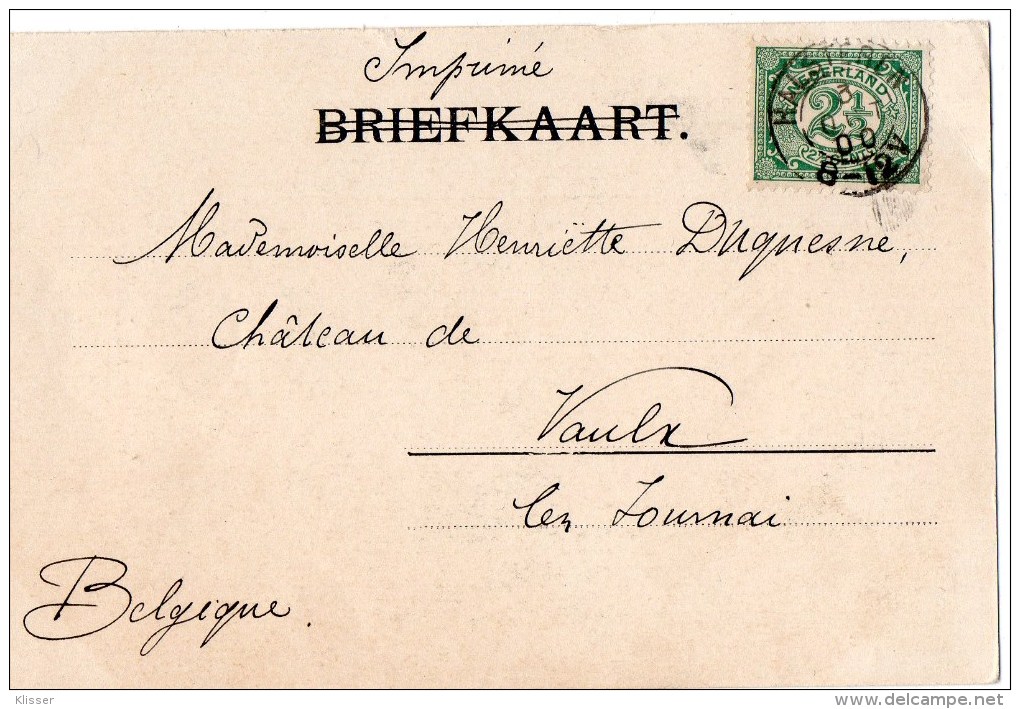 Imprimé
BRIEFKAART.
NEDERLAND
2½
CENT
00
8-12V
Mademoiselle Henriëtte Duquesne,
Château de
Vaulx
lez Tournai
Belgique.
Klisser
www.delcampe.net